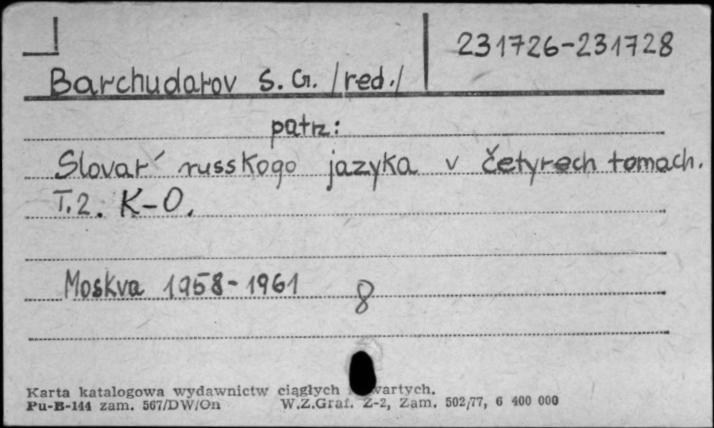 231726-231728
Barchudarov S. G. /red./
patrz:
Slovar' russkogo jazyka v četyrech tomach.
T.2. K-O.
Moskva 1958-1961
8
Karta katalogowa wydawnictw ciągłych wartych.
Pu-B-144 zam. 567/DW/On W.Z.Graf. Z-2, Zam. 502/77, 6 400 000